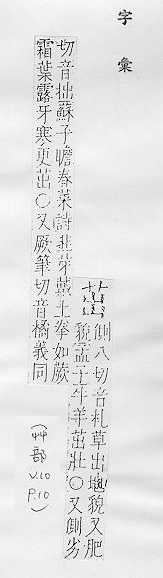 字彙
側八切音札草出地貌又肥
貌孟子牛羊茁壯○又側劣
切音拙蘇子瞻春菜詩韭芽戴土拳如蕨
霜葉露牙寒更茁○又厥筆切音橘義同
(艸部 V.10 P.10)